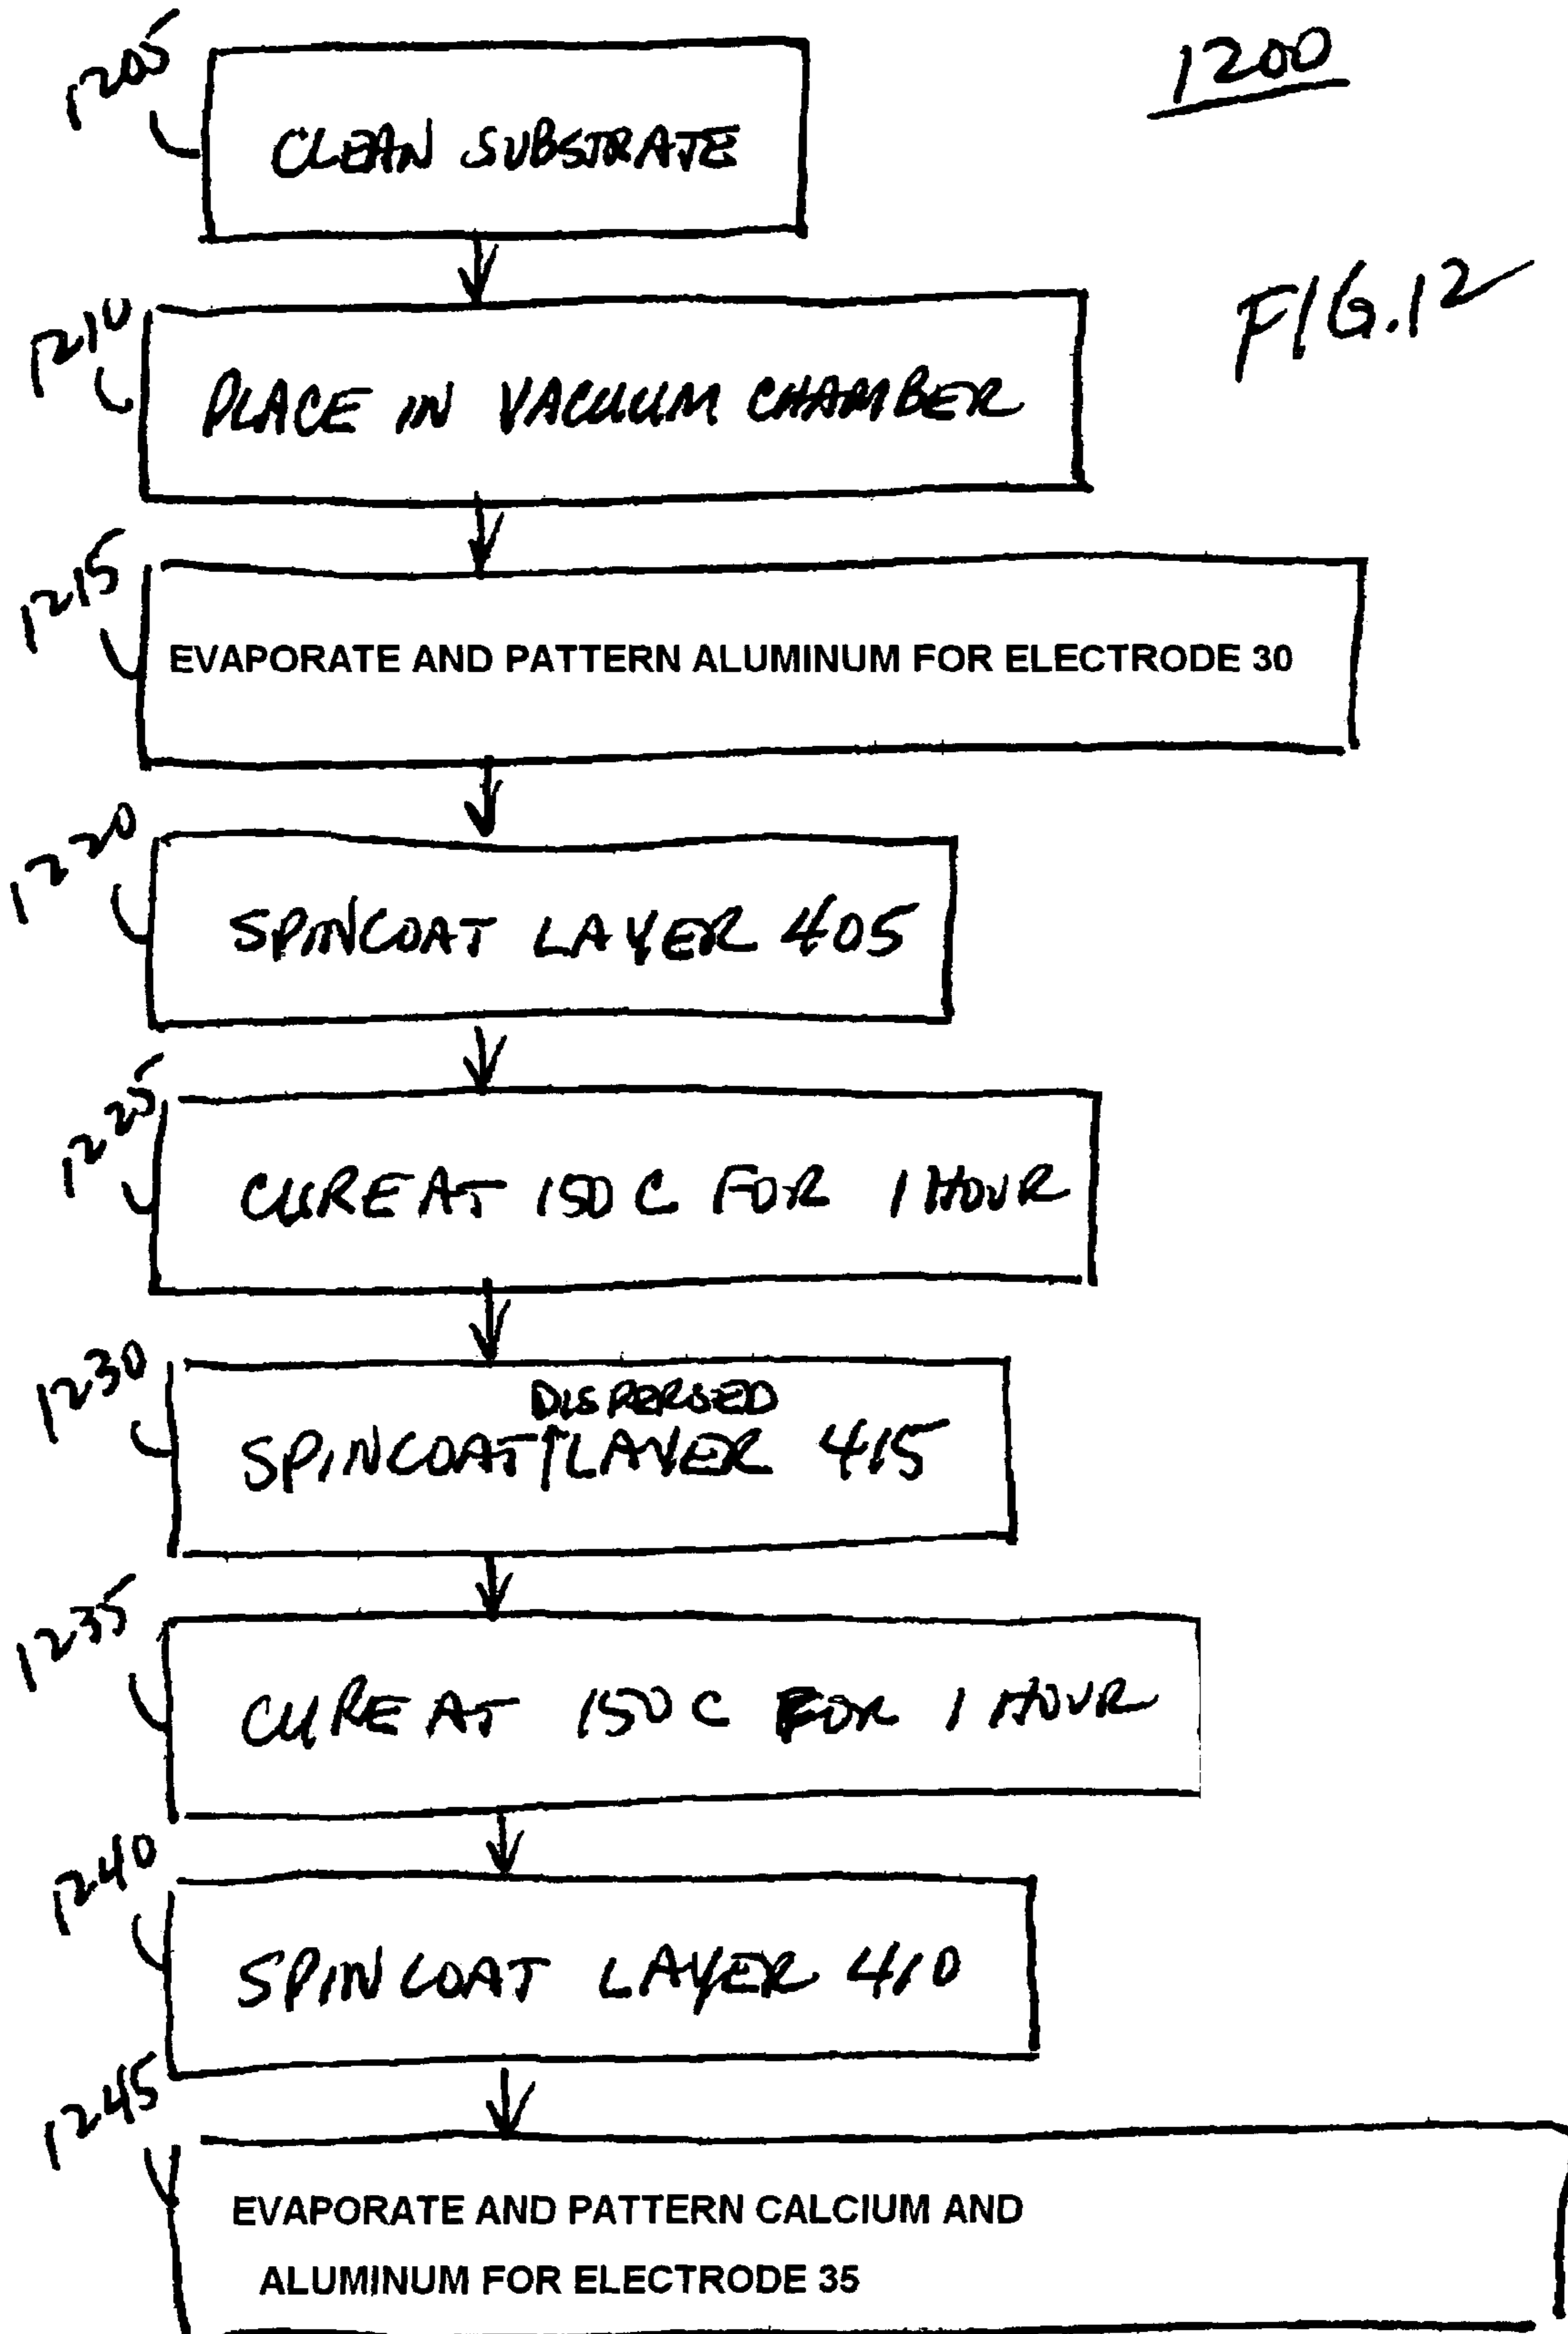 1200
FIG.12
1205
CLEAN SUBSTRATE
1210
PLACE IN VACUUM CHAMBER
1215
EVAPORATE AND PATTERN ALUMINUM FOR ELECTRODE 30
1220
SPINCOAT LAYER 405
1225
CURE AT 150 C FOR 1 HOUR
1230
DISPERSED
SPINCOAT LAYER 415
1235
CURE AT 150 C FOR 1 HOUR
1240
SPINCOAT LAYER 410
1245
EVAPORATE AND PATTERN CALCIUM AND
ALUMINUM FOR ELECTRODE 35